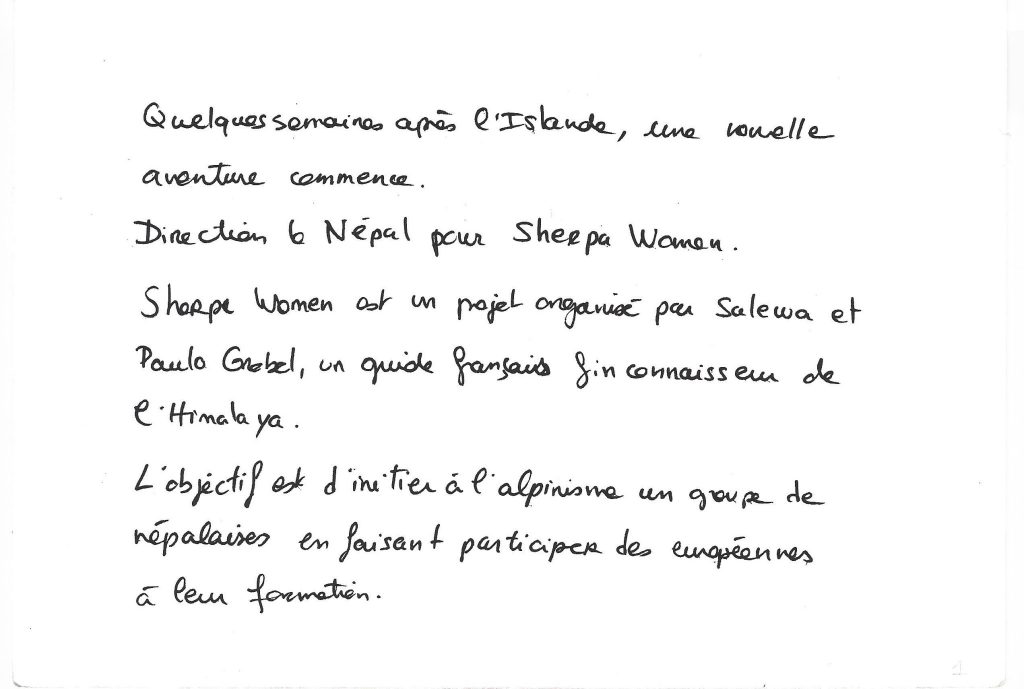 Quelques semaines après l'Islande, une nouvelle
aventure commence.
Direction le Népal pour Sherpa Women.
Sherpa Women est un projet organisé par Salewa et
Paulo Grobel, un guide français fin connaisseur de
l'Himalaya.
L'objectif est d'initier à l'alpinisme un groupe de
népalaises en faisant participer des européennes
à leur formation.
1